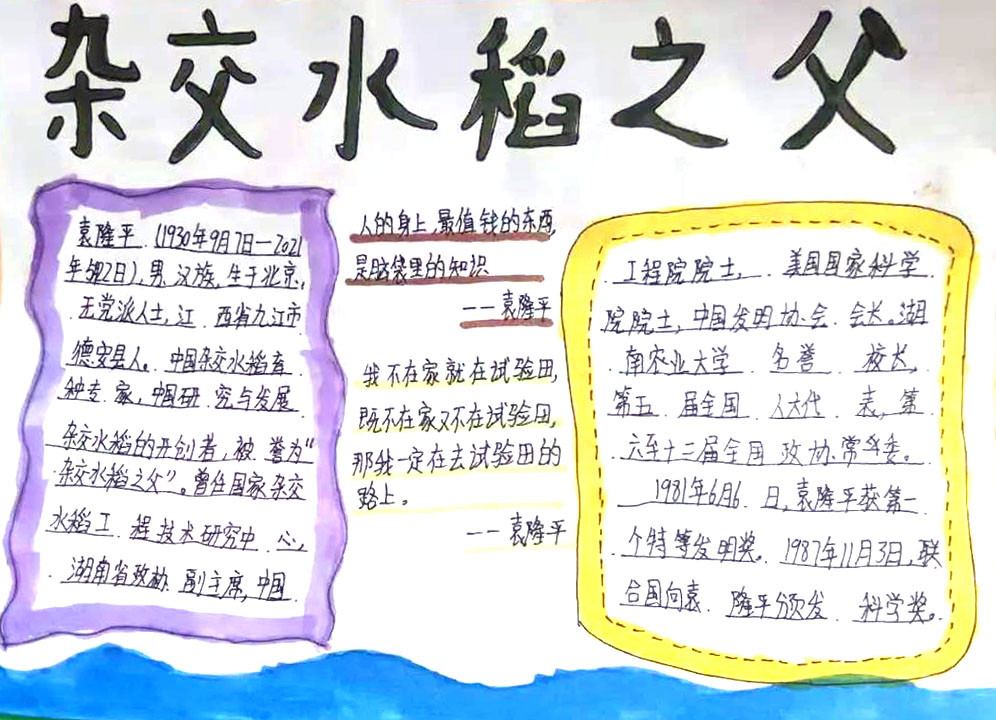 杂交水稻之父
袁隆平.(1930年9月7日—2021
年5月22日),男.汉族,生于北京,
无党派人士,江.西省九江市
德安县人。中国杂交水稻育
种专.家,中国研.究与发展
杂交水稻的开创者,被.誉为“
杂交水稻之父”。曾任国家杂交
水稻工.程技术研究中.心,
湖南省政协.副主席,中国
人的身上,最值钱的东西,
是脑袋里的知识
——袁隆平
我不在家就在试验田,
既不在家又不在试验田,
那我一定在去试验田的
路上。
——袁隆平
工程院院士,.美国国家科学
院院士,中国发明协.会.会长。湖
南农业大学.名誉.校长,
第五.届全国.人大代.表,第
六至十二届全国.政协.常委。
1981年6月6.日,袁隆平获第一
个特等发明奖。1987年11月3日,联
合国向袁.隆平颁发.科学奖。